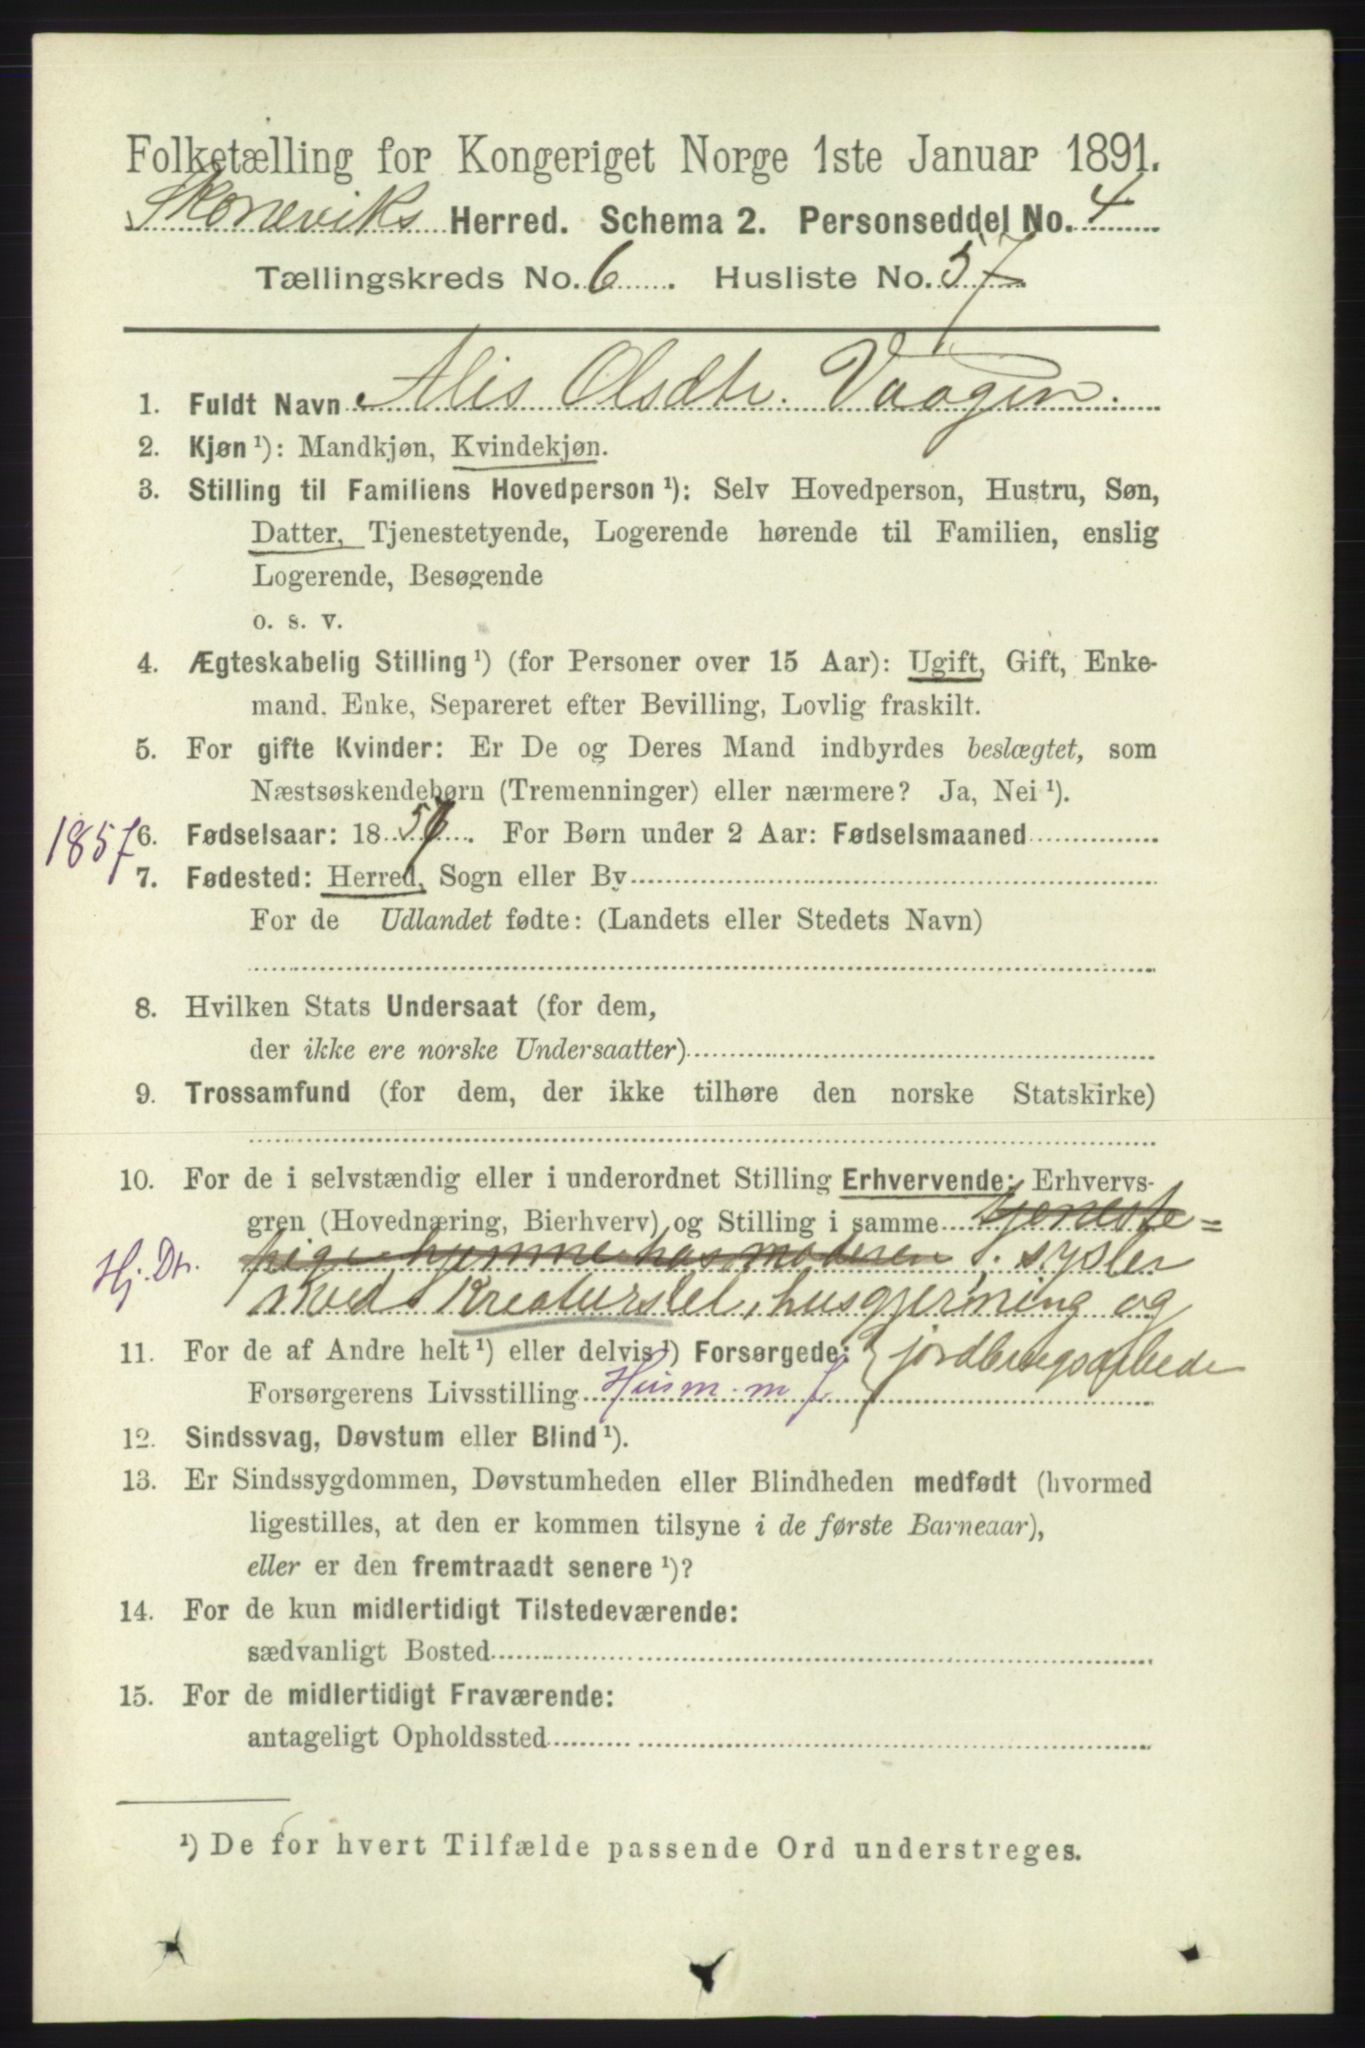 Folketælling for Kongeriget Norge 1ste Januar 1891.
Skoneviks Herred. Schema 2. Personseddel No. 4
Tællingskreds No. 6. Husliste No. 57
1. Fuldt Navn Alis Olsdtr. Vaagen.
2. Kjøn ¹): Mandkjøn, Kvindekjøn.
3. Stilling til Familiens Hovedperson ¹): Selv Hovedperson, Hustru, Søn,
Datter, Tjenestetyende, Logerende hørende til Familien, enslig
Logerende, Besøgende
o. s. v.
4. Ægteskabelig Stilling ¹) (for Personer over 15 Aar): Ugift, Gift, Enke-
mand, Enke, Separeret efter Bevilling, Lovlig fraskilt.
5. For gifte Kvinder: Er De og Deres Mand indbyrdes beslægtet, som
Næstsøskendebørn (Tremenninger) eller nærmere? Ja, Nei ¹).
1857 6. Fødselsaar: 1857. For Børn under 2 Aar: Fødselsmaaned
7. Fødested: Herred, Sogn eller By
For de Udlandet fødte: (Landets eller Stedets Navn)
8. Hvilken Stats Undersaat (for dem,
der ikke ere norske Undersaatter)
9. Trossamfund (for dem, der ikke tilhøre den norske Statskirke)
10. For de i selvstændig eller i underordnet Stilling Erhvervende: Erhvervs-
gren (Hovednæring, Bierhverv) og Stilling i samme tjeneste=
Hj. Dtr. pige hjemme hos moderen; sysler
med Kreaturstel, husgjerning og
11. For de af Andre helt ¹) eller delvis ¹) Forsørgede: jordbrugsarbede
Forsørgerens Livsstilling Husm. m J
12. Sindssvag, Døvstum eller Blind ¹).
13. Er Sindssygdommen, Døvstumheden eller Blindheden medfødt (hvormed
ligestilles, at den er kommen tilsyne i de første Barneaar),
eller er den fremtraadt senere ¹)?
14. For de kun midlertidigt Tilstedeværende:
sædvanligt Bosted
15. For de midlertidigt Fraværende:
antageligt Opholdssted
¹) De for hvert Tilfælde passende Ord understreges.